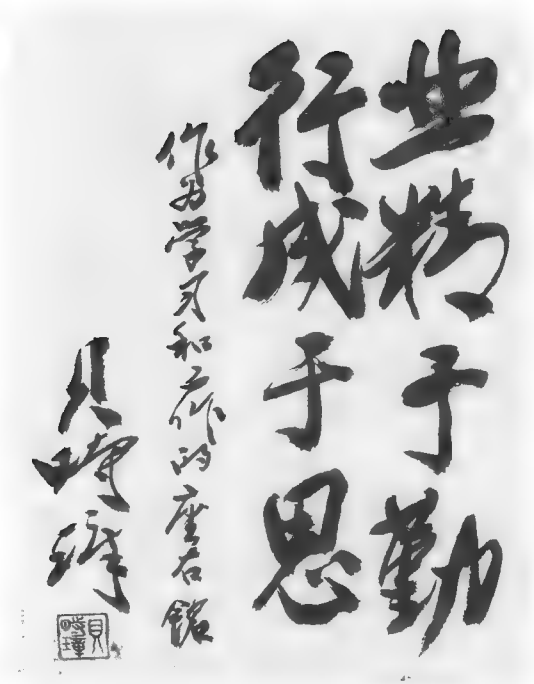 业精于勤
行成于思
作为学习和工作的座右銘
贝時璋
貝時璋